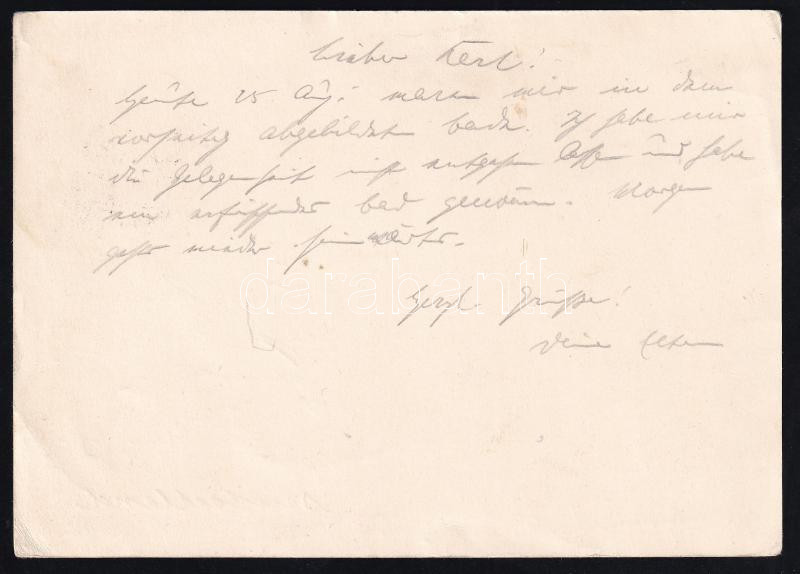 Lieber Karl!
Heute 25 Aug. waren wir in dem
vorseitig abgebildeten Bade. Ich habe mir
die Gelegenheit nicht entgehen lassen und habe
ein erfrischendes Bad genommen. Morgen
geht's wieder heimwärts.
Herzl. Grüsse!
Deine Eltern
darabanth